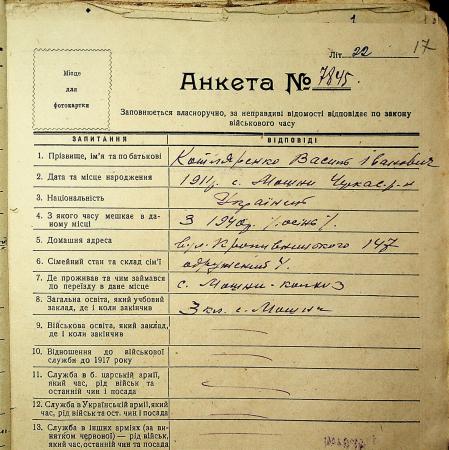 1
Літ. 22
17
Місце
для
фотокартки
Анкета № 7845.
Заповнюється власноручно, за неправдиві відомості відповідає по закону
військового часу
ЗАПИТАННЯ
ВІДПОВІДІ
1. Прізвище, ім'я та по батькові
Котляренко Василь Іванович
2. Дата та місце народження
1911р. с. Мошни Черкас. р-н
3. Національність
Українець
4. З якого часу мешкає в да-
ному місці
З 1940р. /осінь/.
5. Домашня адреса
вул. Кропивницького 147
6. Сімейний стан та склад сім'ї
одружений 4.
7. Де проживав та чим займався
до переїзду в дане місце
с. Мошни - колхоз
8. Загальна освіта, який учбовий
заклад, де і коли закінчив
3 кл. с. Мошни
9. Військова освіта, який заклад,
де і коли закінчив
10. Відношення до військової
служби до 1917 року
11. Служба в б. царській армії,
який час, рід військ та
останній чин і посада
12. Служба в Українській армії, який
час, рід військ та ост. чин і посада
13. Служба в інших арміях (за ви-
нятком червоної) — рід військ,
який час, останній чин та посада